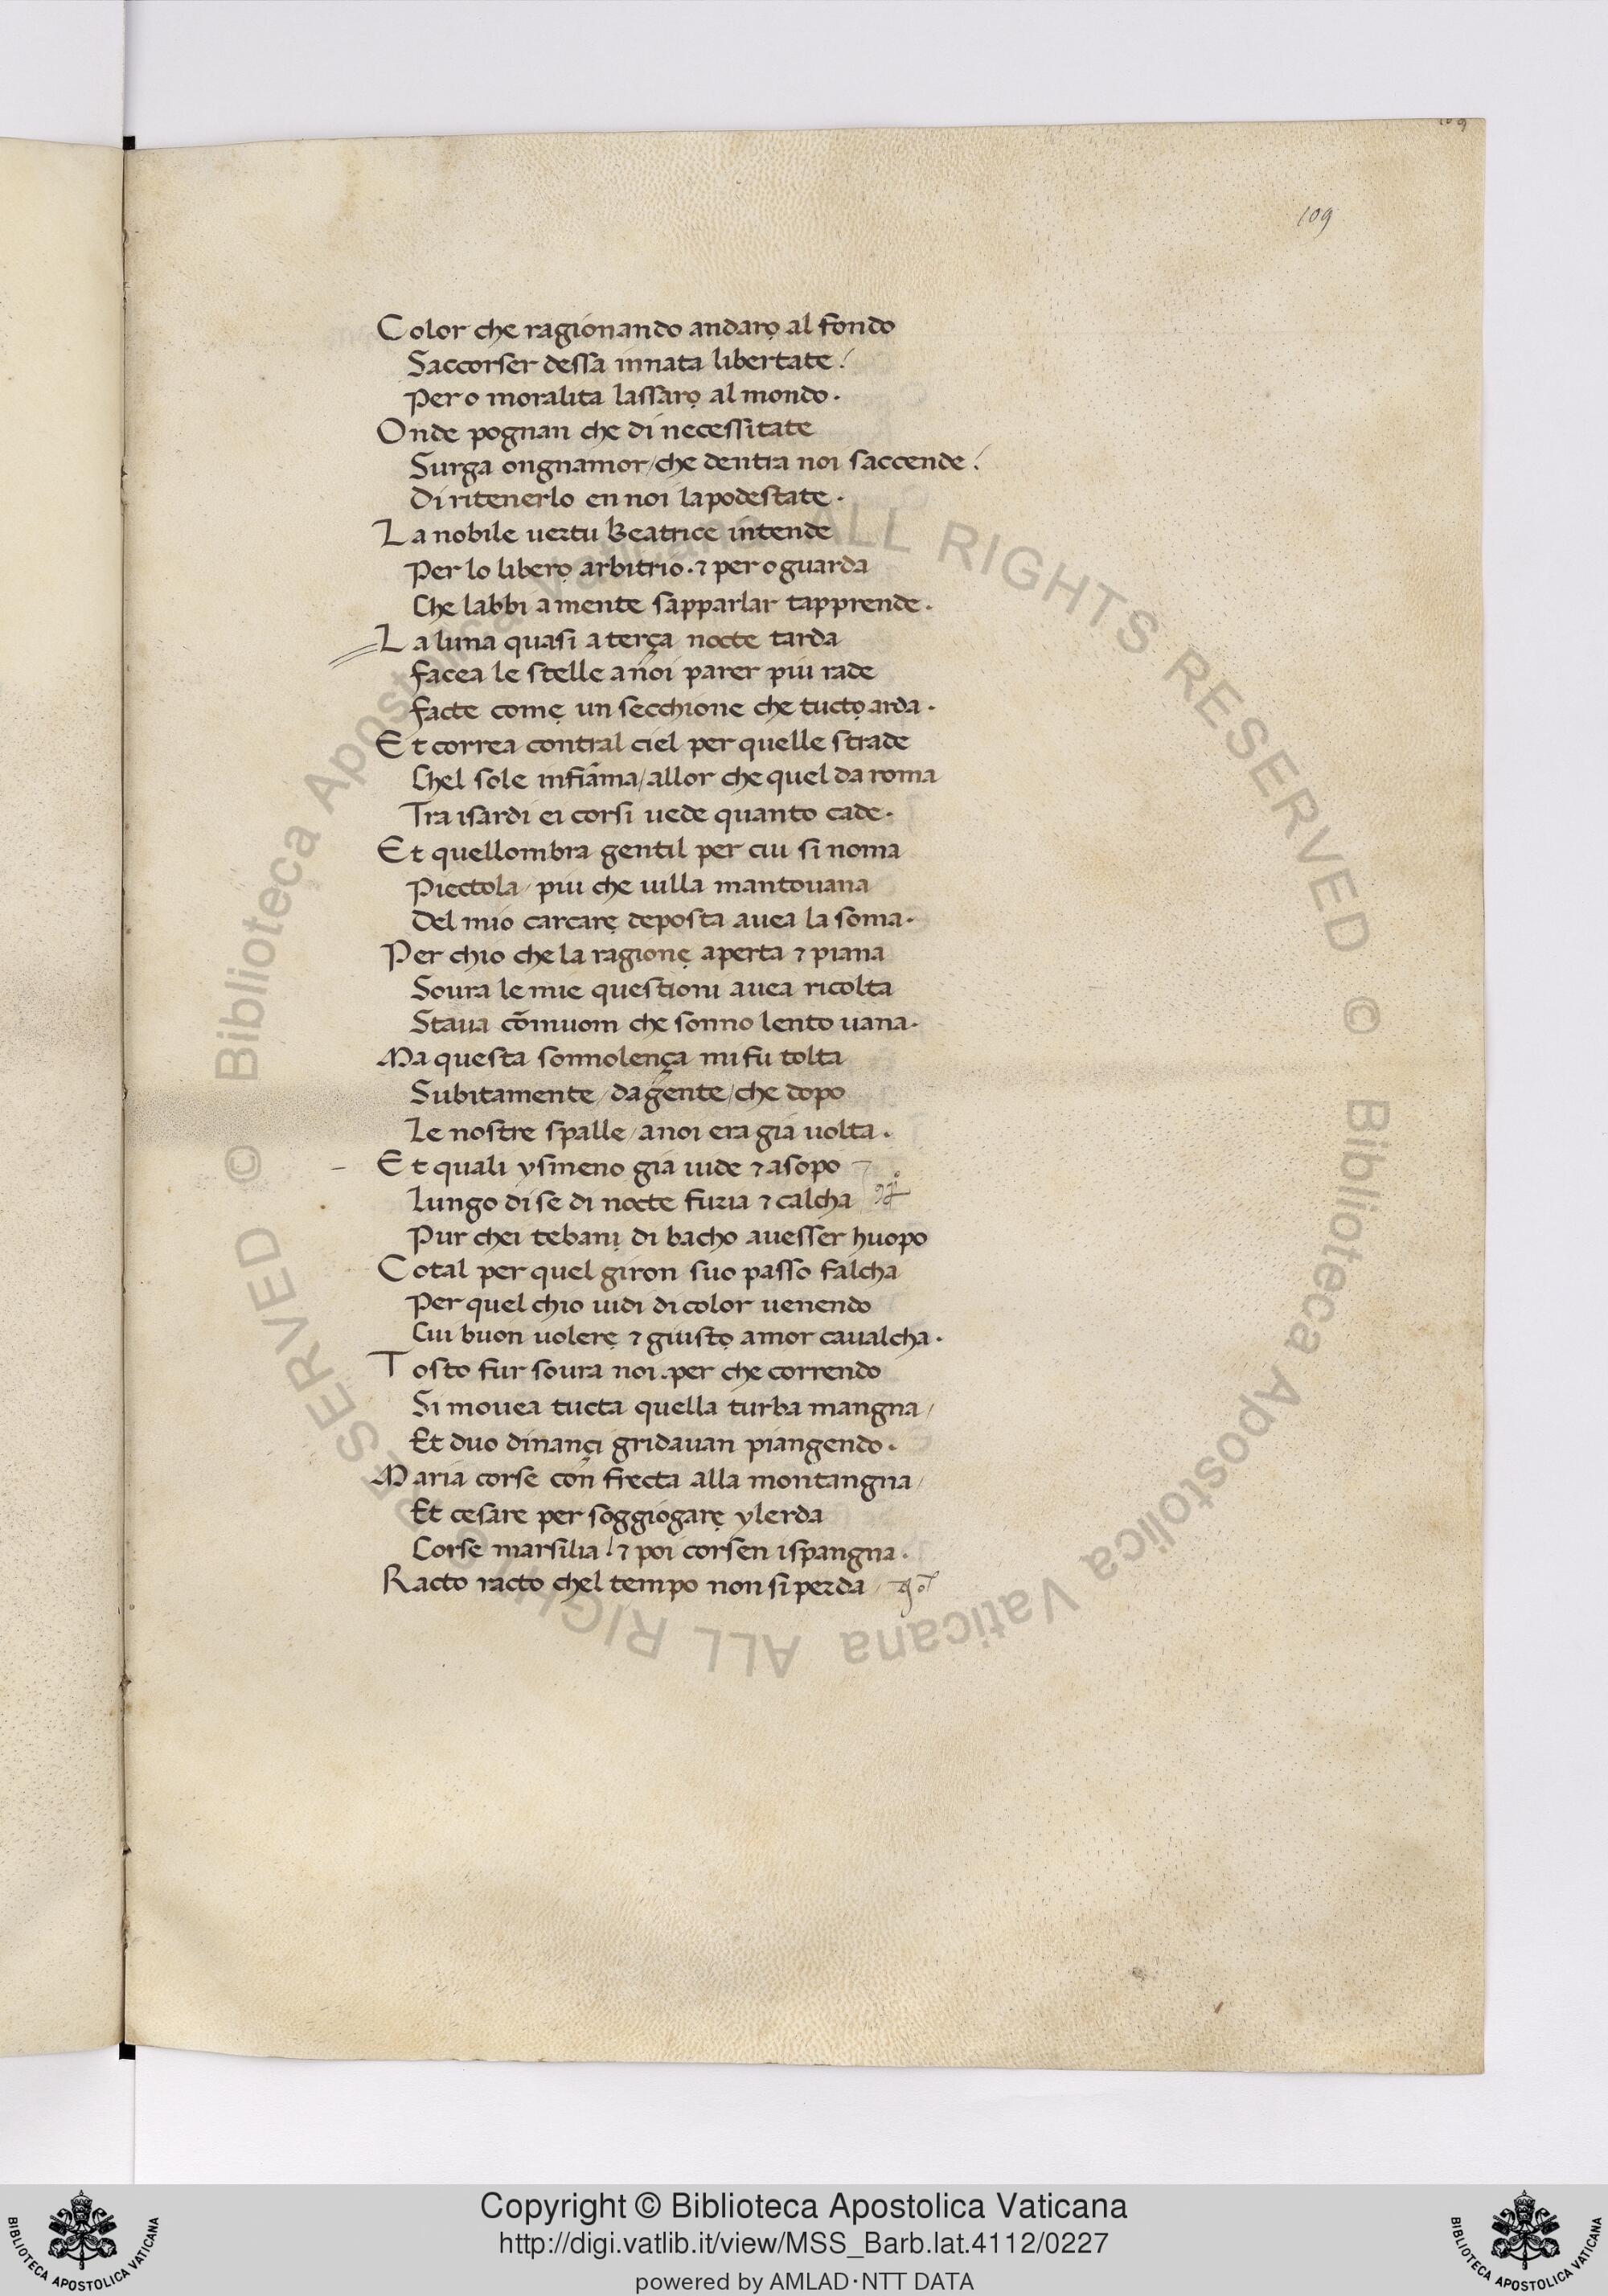 109
109
Color che ragionando andarọ al fondo
Saccorser dessa innata libertate!
Per o moralita lassarọ al mondo.
Onde pognan che di necessitate
Surga ongnamor/che dentra noi saccende!
Di ritenerlo en noi lapodestate.
La nobile uertu Beatrice intende
Per lo liberọ arbitrio. ⁊ per o guarda
Che labbi amente sapparlar tapprende.
La luna quasi aterça nocte tarda
facea le stelle anoi parer piu rade
facte comẹ un secchione che tuctọ arda.
Et correa contral ciel per quelle strade
Chel sole infiãma/allor che quel da roma
Tra isardi ei corsi uede quanto cade.
Et quellombra gentil per cui si noma
Piectola/piu che uilla mantouana
Del mio carcarẹ deposta auea la soma.
Per chio che la ragionẹ aperta ⁊ piana
Soura le mie questioni auea ricolta
Staua cõmuom che sonno lento uana.
Ma questa sonnolença mi fu tolta
Subitamente/dagente/che dopo
Le nostre spalle/anoi era gia uolta.
Et quali ysmeno gia uide ⁊ asopo
Lungo di se di nocte furia ⁊ calcha
Pur chei tebanị di bacho auesser huopo
Cotal per quel giron suo passo falcha
Per quel chio uidi di color uenendo
Cui buon uolerẹ ⁊ giustọ amor caualcha.
Tosto fur soura noi.per che correndo
Si mouea tucta quella turba mangna/
Et duo dinançi gridauan piangendo.
Maria corse con frecta alla montangna/
Et cesare per soggiogarẹ ylerda
Corse marsilia! ⁊ poi corsen ispangna.
Racto racto chel tempo non si perda/
© Biblioteca Apostolica Vaticana ALL RIGHTS RESERVED © Biblioteca Apostolica Vaticana ALL RIGHTS RESERVED
Copyright © Biblioteca Apostolica Vaticana
http://digi.vatlib.it/view/MSS_Barb.lat.4112/0227
powered by AMLAD·NTT DATA
BIBLIOTECA APOSTOLICA VATICANA
BIBLIOTECA APOSTOLICA VATICANA